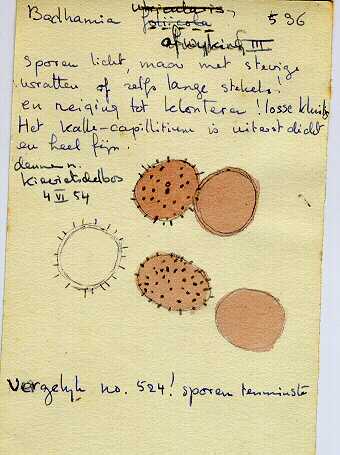 Badhamia utricularis, 536
foliicola
afwijking III
sporen licht, maar met stevige
wratten of zelfs lange stekels!
en neiging tot klonteren! losse kluitjes
Het kalk-capillitium is uiterst dicht
en heel fijn.
dennen n.
4 VI 54
Vergelijk no. 524! sporen tenminste